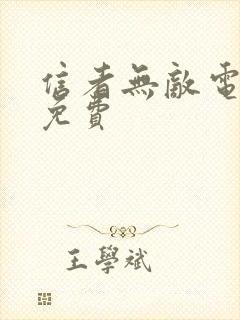 信者無敵電
免費
王學斌